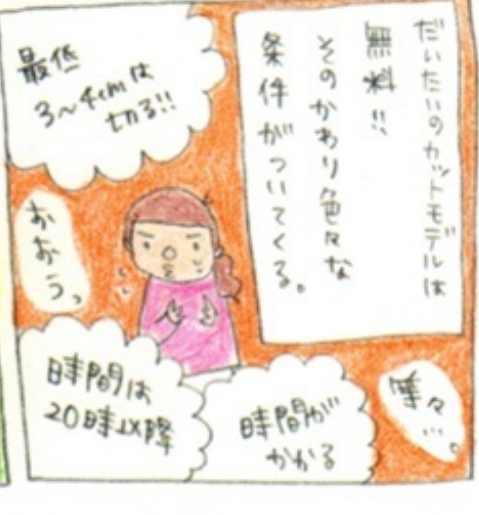 だいたいのカットモデルは
無料!!
そのかわり色々な
条件がついてくる。
最低
3〜4cmは
切る!!
おおう、
時間は
20時以降
時間が
かかる
等々…。